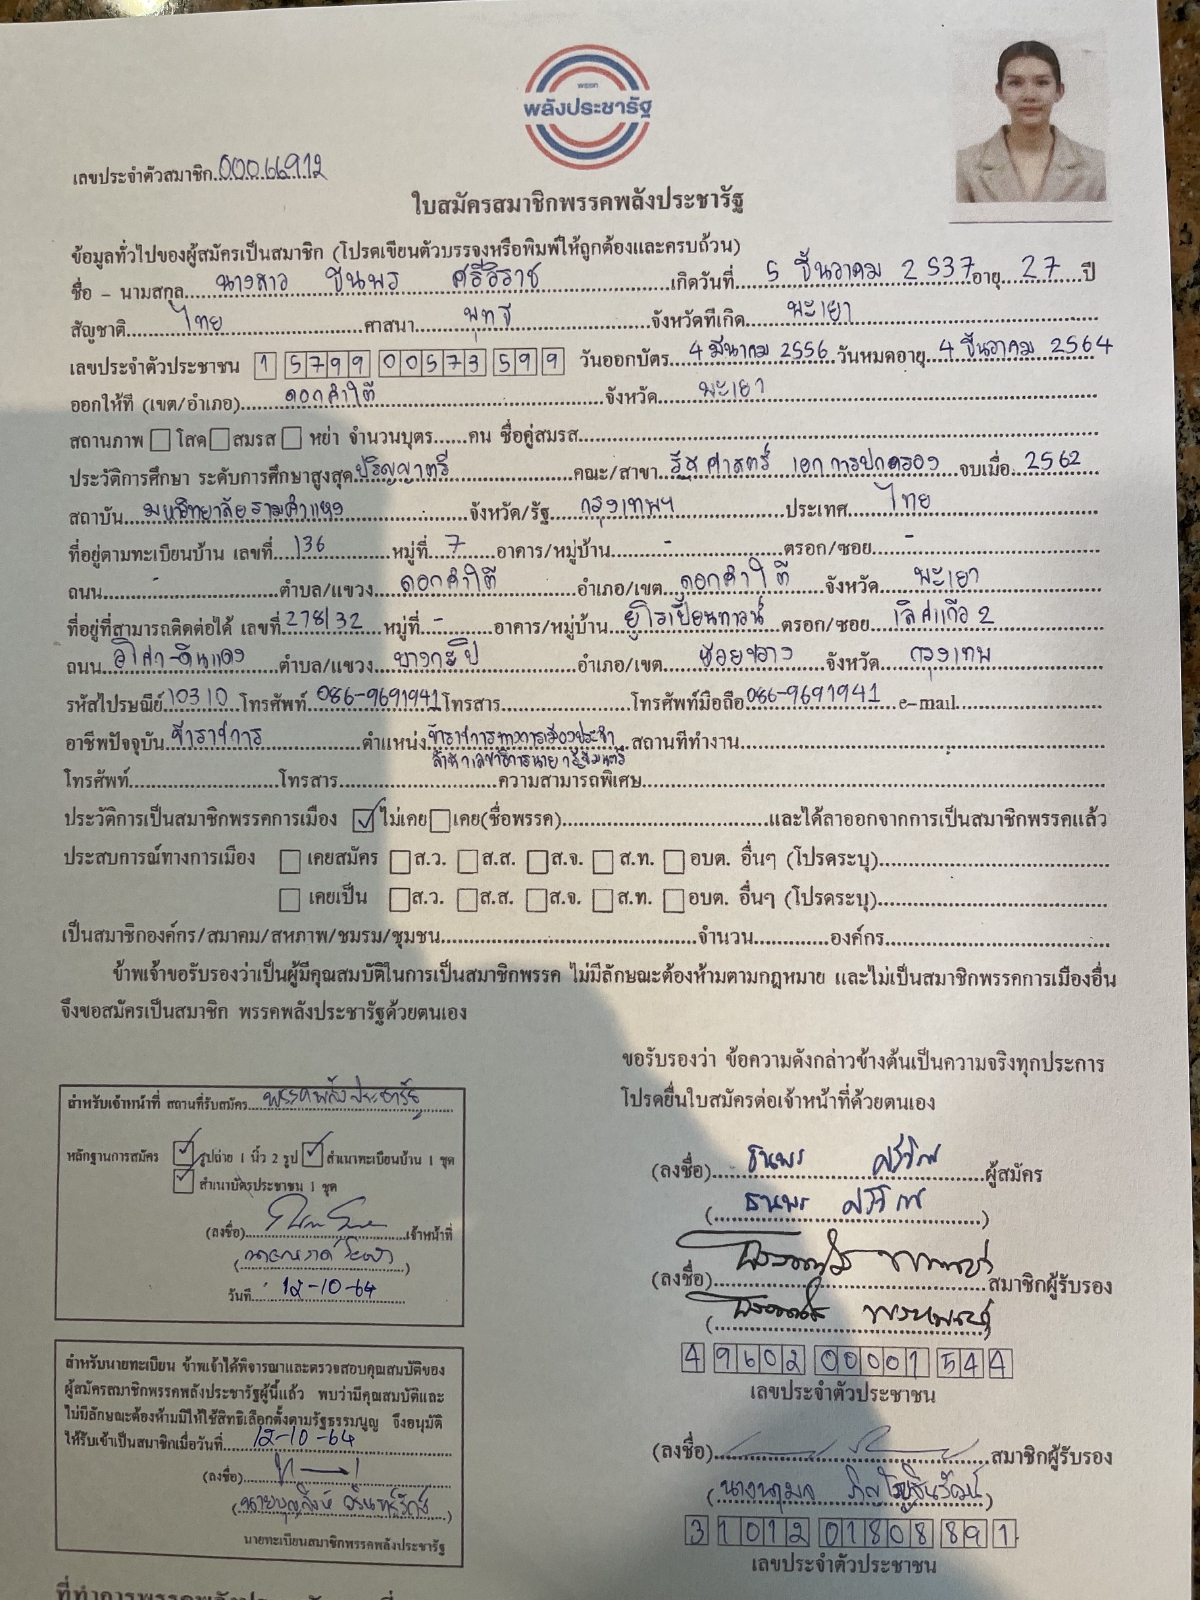 พรรค
พลังประชารัฐ
เลขประจำตัวสมาชิก 00066912
ใบสมัครสมาชิกพรรคพลังประชารัฐ
ข้อมูลทั่วไปของผู้สมัครเป็นสมาชิก (โปรดเขียนตัวบรรจงหรือพิมพ์ให้ถูกต้องและครบถ้วน)
ชื่อ - นามสกุล นางสาว ธนพร ศรีวิราช เกิดวันที่ 5 ธันวาคม 2537 อายุ 27 ปี
สัญชาติ ไทย ศาสนา พุทธ จังหวัดที่เกิด พะเยา
เลขประจำตัวประชาชน 1 5799 00573 599 วันออกบัตร 4 มีนาคม 2556 วันหมดอายุ 4 ธันวาคม 2564
ออกให้ที่ (เขต/อำเภอ) ดอกคำใต้ จังหวัด พะเยา
สถานภาพ โสด สมรส หย่า จำนวนบุตร......คน ชื่อคู่สมรส
ประวัติการศึกษา ระดับการศึกษาสูงสุด ปริญญาตรี คณะ/สาขา รัฐศาสตร์ เอกการปกครอง จบเมื่อ 2562
สถาบัน มหาวิทยาลัยรามคำแหง จังหวัด/รัฐ กรุงเทพฯ ประเทศ ไทย
ที่อยู่ตามทะเบียนบ้าน เลขที่ 136 หมู่ที่ 7 อาคาร/หมู่บ้าน - ตรอก/ซอย -
ถนน - ตำบล/แขวง ดอกคำใต้ อำเภอ/เขต ดอกคำใต้ จังหวัด พะเยา
ที่อยู่ที่สามารถติดต่อได้ เลขที่ 278/32 หมู่ที่ - อาคาร/หมู่บ้าน ยูโรเปี้ยนทาวน์ ตรอก/ซอย เลิศแก้ว 2
ถนน อโศก-ดินแดง ตำบล/แขวง บางกะปิ อำเภอ/เขต ห้วยขวาง จังหวัด กรุงเทพ
รหัสไปรษณีย์ 10310 โทรศัพท์ 086-9691941 โทรสาร โทรศัพท์มือถือ 086-9691941 e-mail
อาชีพปัจจุบัน ข้าราชการ ตำแหน่ง ข้าราชการทางการเมืองประจำ สถานที่ทำงาน
สำนักเลขาธิการนายกรัฐมนตรี
โทรศัพท์ โทรสาร ความสามารถพิเศษ
ประวัติการเป็นสมาชิกพรรคการเมือง ไม่เคย เคย(ชื่อพรรค) และได้ลาออกจากการเป็นสมาชิกพรรคแล้ว
ประสบการณ์ทางการเมือง เคยสมัคร ส.ว. ส.ส. ส.จ. ส.ท. อบต. อื่นๆ (โปรดระบุ)
เคยเป็น ส.ว. ส.ส. ส.จ. ส.ท. อบต. อื่นๆ (โปรดระบุ)
เป็นสมาชิกองค์กร/สมาคม/สหภาพ/ชมรม/ชุมชน จำนวน องค์กร
ข้าพเจ้าขอรับรองว่าเป็นผู้มีคุณสมบัติในการเป็นสมาชิกพรรค ไม่มีลักษณะต้องห้ามตามกฎหมาย และไม่เป็นสมาชิกพรรคการเมืองอื่น
จึงขอสมัครเป็นสมาชิก พรรคพลังประชารัฐด้วยตนเอง
ขอรับรองว่า ข้อความดังกล่าวข้างต้นเป็นความจริงทุกประการ
โปรดยื่นใบสมัครต่อเจ้าหน้าที่ด้วยตนเอง
(ลงชื่อ) ธนพร ศรีวิราช ผู้สมัคร
( ธนพร ศรีวิราช )
(ลงชื่อ) สมาชิกผู้รับรอง
4 9602 00001 544
เลขประจำตัวประชาชน
(ลงชื่อ) สมาชิกผู้รับรอง
( นางนฤมล ภิญโญสินวัฒน์ )
3 1012 01808 891
เลขประจำตัวประชาชน
สำหรับเจ้าหน้าที่ สถานที่รับสมัคร พรรคพลังประชารัฐ
หลักฐานการสมัคร รูปถ่าย 1 นิ้ว 2 รูป สำเนาทะเบียนบ้าน 1 ชุด
สำเนาบัตรประชาชน 1 ชุด
(ลงชื่อ) เจ้าหน้าที่
วันที่ 12-10-64
สำหรับนายทะเบียน ข้าพเจ้าได้พิจารณาและตรวจสอบคุณสมบัติของ
ผู้สมัครสมาชิกพรรคพลังประชารัฐผู้นี้แล้ว พบว่ามีคุณสมบัติและ
ไม่มีลักษณะต้องห้ามมิให้ใช้สิทธิเลือกตั้งตามรัฐธรรมนูญ จึงอนุมัติ
ให้รับเข้าเป็นสมาชิกเมื่อวันที่ 12-10-64
(ลงชื่อ)
( นายบุญสิงห์ วรินทร์รักษ์ )
นายทะเบียนสมาชิกพรรคพลังประชารัฐ